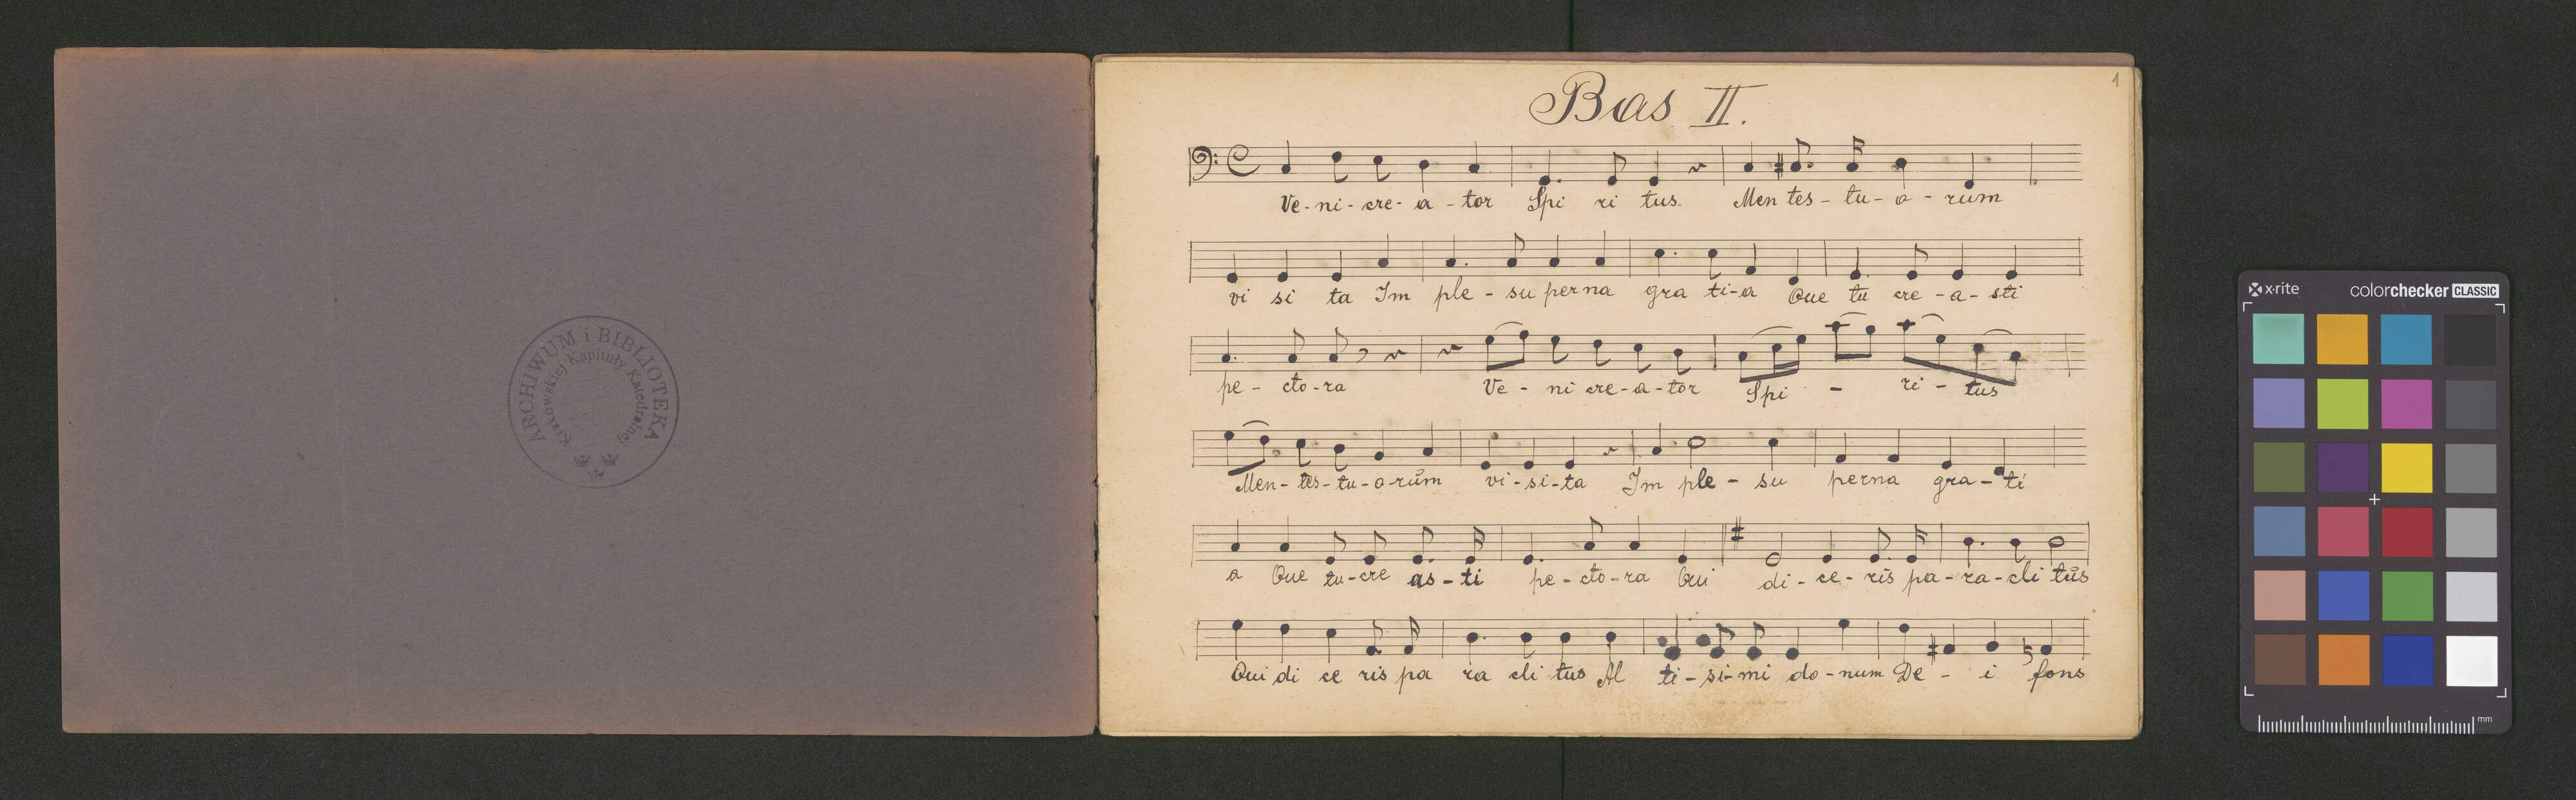 ARCHIWUM i BIBLIOTEKA
Krakowskiej Kapituły Katedralnej
1
Bas II.
Ve-ni-cre-a-tor Spi ri tus Men tes-tu-o-rum
vi si ta Im ple-su perna gra ti-a Que tu cre-a-sti
pe-cto-ra Ve-ni cre-a-tor Spi - ri-tus
Men-tes-tu-o-rum vi-si-ta Im ple-su perna gra-ti
a Que tu-cre as-ti pe-cto-ra Qui di-ce-ris pa-ra-cli tus
Qui di ce ris pa ra cli tus Al ti-si-mi do-num De-i fons
x-rite colorchecker CLASSIC
mm